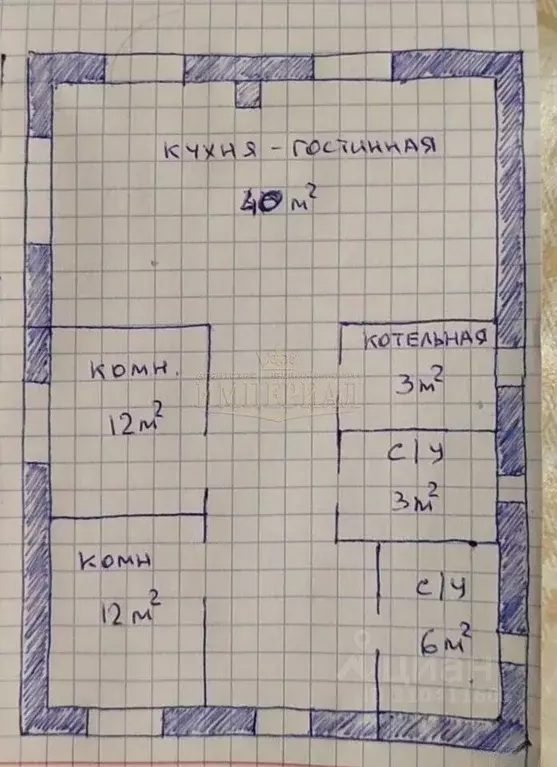 КУХНЯ - ГОСТИННАЯ
40 м²
КОТЕЛЬНАЯ
3 м²
КОМН.
12 м²
ИМПЕРИАЛ
С/У
3 м²
КОМН
12 м²
С/У
6 м²